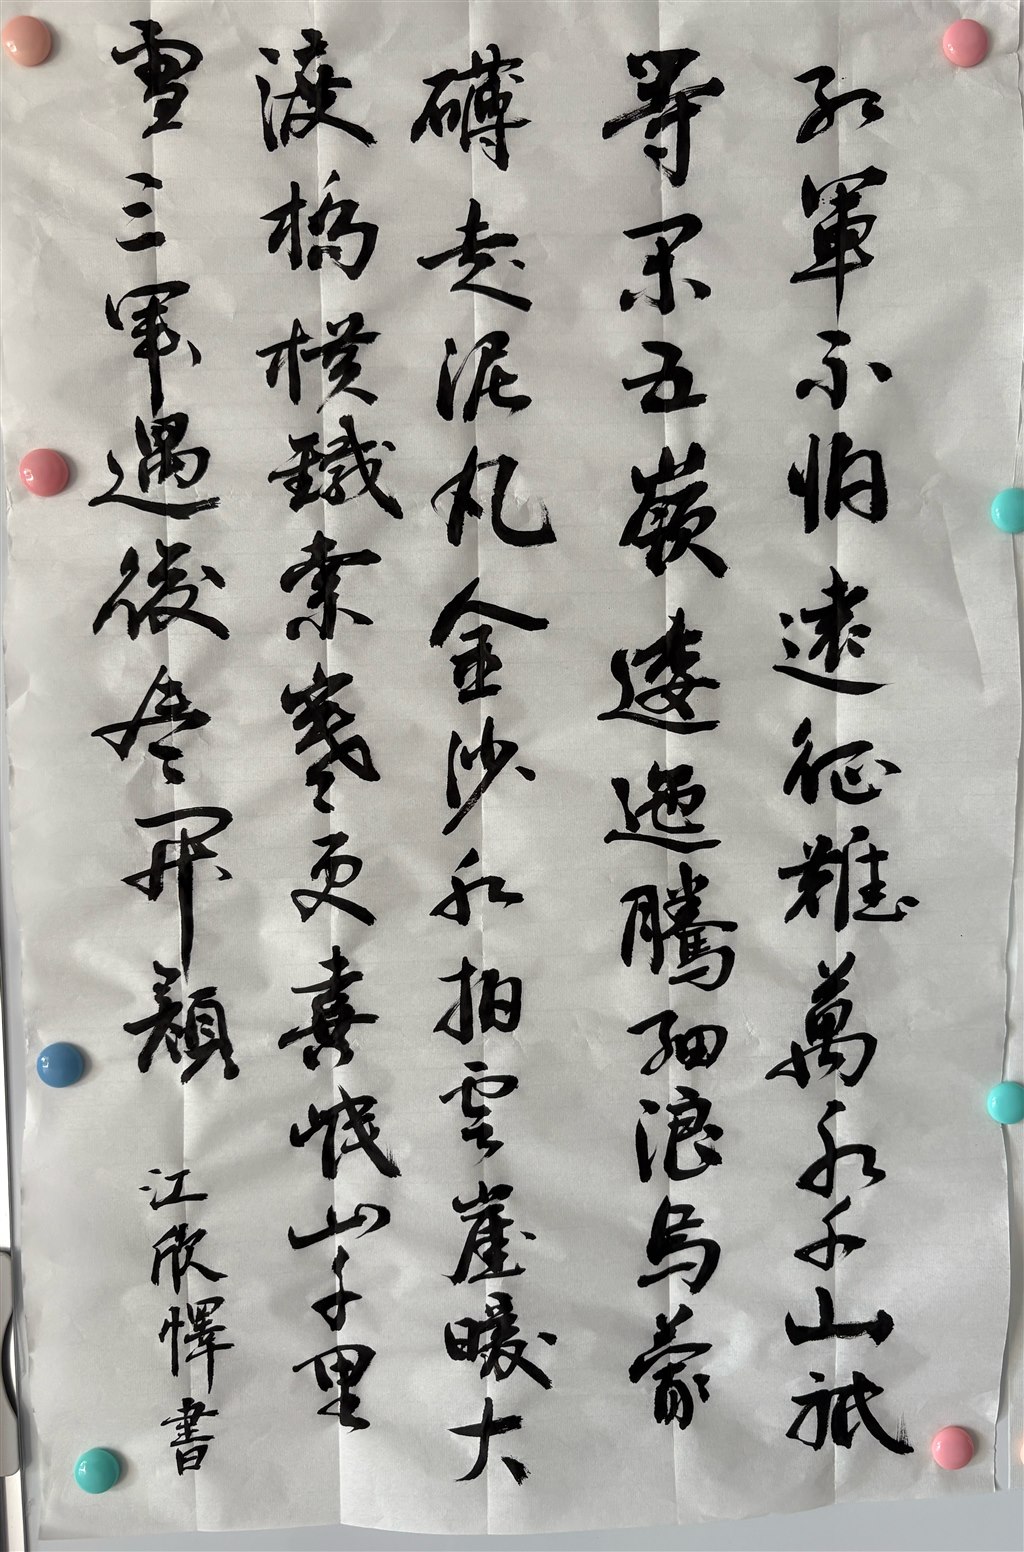 紅軍不怕遠征難萬水千山祇
等閑五嶺逶迤騰細浪烏蒙
礴走泥丸金沙水拍雲崖暖大
渡橋橫鐵索寒更喜岷山千里
雪三軍過後盡開顏
江欣懌書